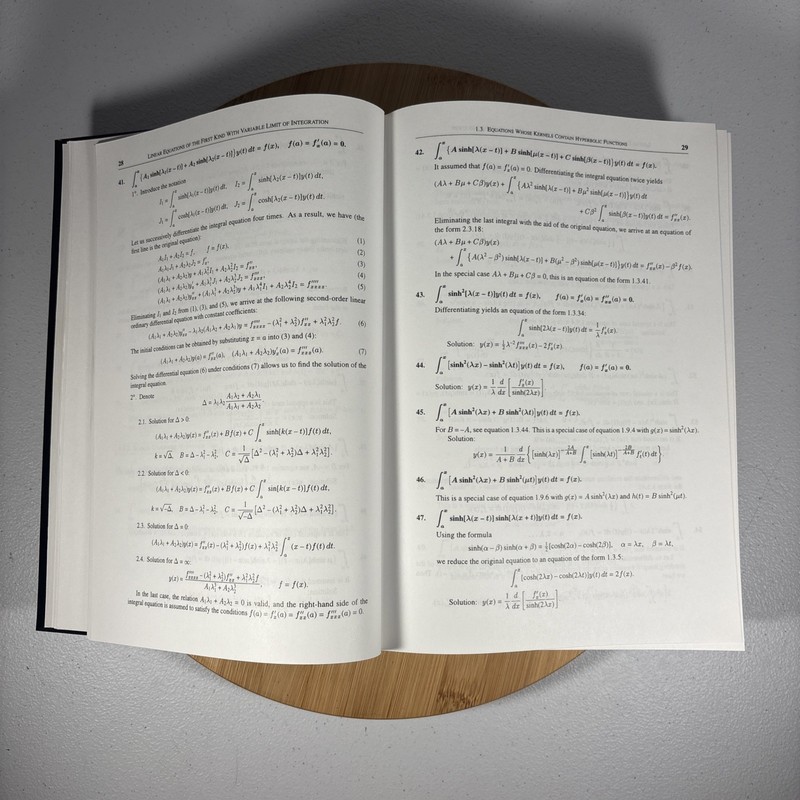 28 LINEAR EQUATIONS OF THE FIRST KIND WITH VARIABLE LIMIT OF INTEGRATION
41. ∫ₐˣ {A₁ sinh[λ₁(x − t)] + A₂ sinh[λ₂(x − t)]}y(t) dt = f(x), f(a) = f′ₓ(a) = 0.
1°. Introduce the notation
I₁ = ∫ₐˣ sinh[λ₁(x − t)]y(t) dt, I₂ = ∫ₐˣ sinh[λ₂(x − t)]y(t) dt,
J₁ = ∫ₐˣ cosh[λ₁(x − t)]y(t) dt, J₂ = ∫ₐˣ cosh[λ₂(x − t)]y(t) dt.
Let us successively differentiate the integral equation four times. As a result, we have (the
first line is the original equation):
A₁I₁ + A₂I₂ = f, f = f(x), (1)
A₁λ₁J₁ + A₂λ₂J₂ = f′ₓ, (2)
(A₁λ₁ + A₂λ₂)y + A₁λ₁²I₁ + A₂λ₂²I₂ = f″ₓₓ, (3)
(A₁λ₁ + A₂λ₂)y′ₓ + A₁λ₁³J₁ + A₂λ₂³J₂ = f‴ₓₓₓ, (4)
(A₁λ₁ + A₂λ₂)y″ₓₓ + (A₁λ₁³ + A₂λ₂³)y + A₁λ₁⁴I₁ + A₂λ₂⁴I₂ = f⁗ₓₓₓₓ. (5)
Eliminating I₁ and I₂ from (1), (3), and (5), we arrive at the following second-order linear
ordinary differential equation with constant coefficients:
(A₁λ₁ + A₂λ₂)y″ₓₓ − λ₁λ₂(A₁λ₂ + A₂λ₁)y = f⁗ₓₓₓₓ − (λ₁² + λ₂²)f″ₓₓ + λ₁²λ₂²f. (6)
The initial conditions can be obtained by substituting x = a into (3) and (4):
(A₁λ₁ + A₂λ₂)y(a) = f″ₓₓ(a), (A₁λ₁ + A₂λ₂)y′ₓ(a) = f‴ₓₓₓ(a). (7)
Solving the differential equation (6) under conditions (7) allows us to find the solution of the
integral equation.
2°. Denote
Δ = λ₁λ₂ (A₁λ₂ + A₂λ₁)/(A₁λ₁ + A₂λ₂)
2.1. Solution for Δ > 0:
(A₁λ₁ + A₂λ₂)y(x) = f″ₓₓ(x) + Bf(x) + C ∫ₐˣ sinh[k(x − t)]f(t) dt,
k = √Δ, B = Δ − λ₁² − λ₂², C = (1/√Δ)[Δ² − (λ₁² + λ₂²)Δ + λ₁²λ₂²].
2.2. Solution for Δ < 0:
(A₁λ₁ + A₂λ₂)y(x) = f″ₓₓ(x) + Bf(x) + C ∫ₐˣ sin[k(x − t)]f(t) dt,
k = √−Δ, B = Δ − λ₁² − λ₂², C = (1/√−Δ)[Δ² − (λ₁² + λ₂²)Δ + λ₁²λ₂²].
2.3. Solution for Δ = 0:
(A₁λ₁ + A₂λ₂)y(x) = f″ₓₓ(x) − (λ₁² + λ₂²)f(x) + λ₁²λ₂² ∫ₐˣ (x − t)f(t) dt.
2.4. Solution for Δ = ∞:
y(x) = (f⁗ₓₓₓₓ − (λ₁² + λ₂²)f″ₓₓ + λ₁²λ₂²f)/(A₁λ₁³ + A₂λ₂³), f = f(x).
In the last case, the relation A₁λ₁ + A₂λ₂ = 0 is valid, and the right-hand side of the
integral equation is assumed to satisfy the conditions f(a) = f′ₓ(a) = f″ₓₓ(a) = f‴ₓₓₓ(a) = 0.
1.3. EQUATIONS WHOSE KERNELS CONTAIN HYPERBOLIC FUNCTIONS 29
42. ∫ₐˣ {A sinh[λ(x − t)] + B sinh[μ(x − t)] + C sinh[β(x − t)]}y(t) dt = f(x).
It assumed that f(a) = f′ₓ(a) = 0. Differentiating the integral equation twice yields
(Aλ + Bμ + Cβ)y(x) + ∫ₐˣ {Aλ² sinh[λ(x − t)] + Bμ² sinh[μ(x − t)]}y(t) dt
+ Cβ² ∫ₐˣ sinh[β(x − t)]y(t) dt = f″ₓₓ(x).
Eliminating the last integral with the aid of the original equation, we arrive at an equation of
the form 2.3.18:
(Aλ + Bμ + Cβ)y(x)
+ ∫ₐˣ {A(λ² − β²) sinh[λ(x − t)] + B(μ² − β²) sinh[μ(x − t)]}y(t) dt = f″ₓₓ(x) − β²f(x).
In the special case Aλ + Bμ + Cβ = 0, this is an equation of the form 1.3.41.
43. ∫ₐˣ sinh²[λ(x − t)]y(t) dt = f(x), f(a) = f′ₓ(a) = f″ₓₓ(a) = 0.
Differentiating yields an equation of the form 1.3.34:
∫ₐˣ sinh[2λ(x − t)]y(t) dt = (1/λ)f′ₓ(x).
Solution: y(x) = ½λ⁻²f‴ₓₓₓ(x) − 2f′ₓ(x).
44. ∫ₐˣ [sinh²(λx) − sinh²(λt)]y(t) dt = f(x), f(a) = f′ₓ(a) = 0.
Solution: y(x) = (1/λ) (d/dx) [f′ₓ(x)/sinh(2λx)]
45. ∫ₐˣ [A sinh²(λx) + B sinh²(λt)]y(t) dt = f(x).
For B = −A, see equation 1.3.44. This is a special case of equation 1.9.4 with g(x) = sinh²(λx).
Solution:
y(x) = (1/(A + B)) (d/dx) {[sinh(λx)]^(−2A/(A+B)) ∫ₐˣ [sinh(λt)]^(−2B/(A+B)) f′ₜ(t) dt}
46. ∫ₐˣ [A sinh²(λx) + B sinh²(μt)]y(t) dt = f(x).
This is a special case of equation 1.9.6 with g(x) = A sinh²(λx) and h(t) = B sinh²(μt).
47. ∫ₐˣ sinh[λ(x − t)] sinh[λ(x + t)]y(t) dt = f(x).
Using the formula
sinh(α − β) sinh(α + β) = ½[cosh(2α) − cosh(2β)], α = λx, β = λt,
we reduce the original equation to an equation of the form 1.3.5:
∫ₐˣ [cosh(2λx) − cosh(2λt)]y(t) dt = 2f(x).
Solution: y(x) = (1/λ) (d/dx) [f′ₓ(x)/sinh(2λx)]